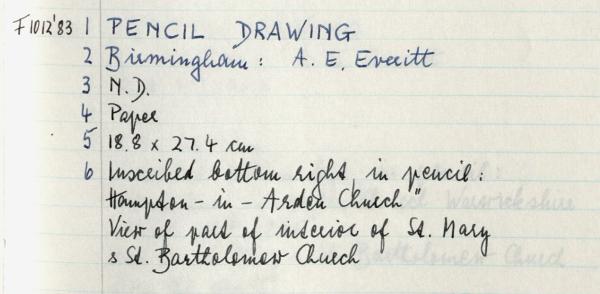 F1012'83 1 PENCIL DRAWING
2 Birmingham: A. E. Everitt
3 N.D.
4 Paper
5 18.8 x 27.4 cm
6 Inscribed bottom right, in pencil:
Hampton-in-Arden Church"
View of part of interior of St. Mary
& St. Bartholomew Church